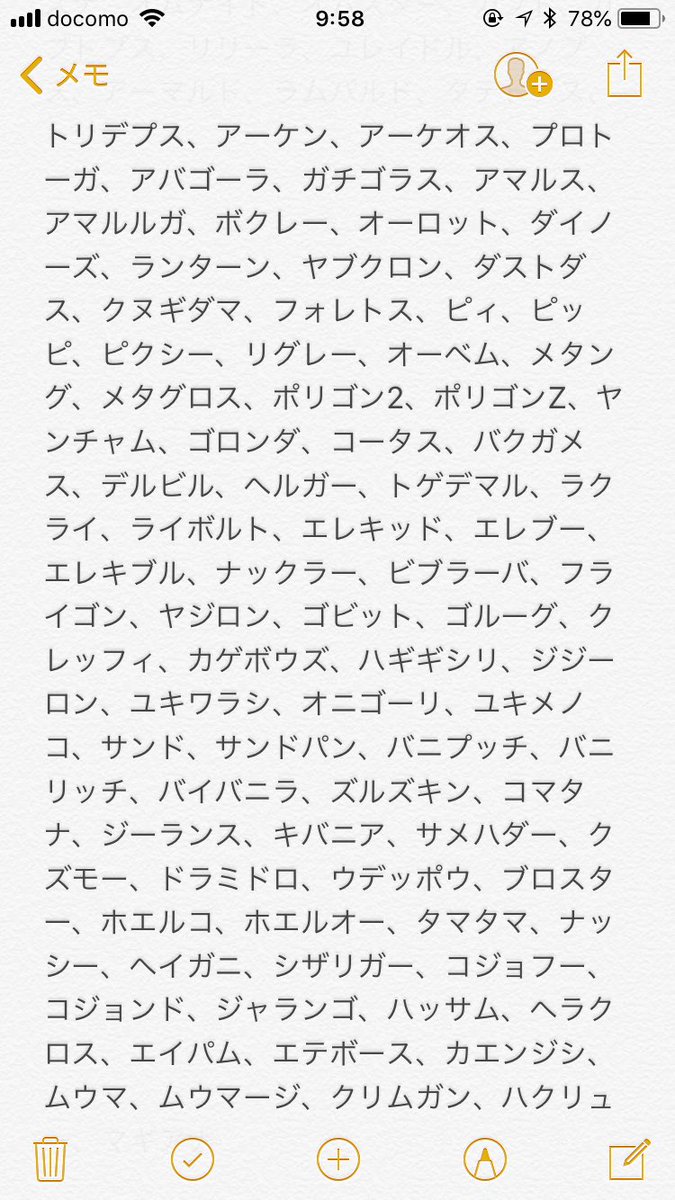 docomo 9:58 78%
メモ
トリデプス、アーケン、アーケオス、プロト
ーガ、アバゴーラ、ガチゴラス、アマルス、
アマルルガ、ボクレー、オーロット、ダイノ
ーズ、ランターン、ヤブクロン、ダストダ
ス、クヌギダマ、フォレトス、ピィ、ピッ
ピ、ピクシー、リグレー、オーベム、メタン
グ、メタグロス、ポリゴン2、ポリゴンZ、ヤ
ンチャム、ゴロンダ、コータス、バクガメ
ス、デルビル、ヘルガー、トゲデマル、ラク
ライ、ライボルト、エレキッド、エレブー、
エレキブル、ナックラー、ビブラーバ、フラ
イゴン、ヤジロン、ゴビット、ゴルーグ、ク
レッフィ、カゲボウズ、ハギギシリ、ジジー
ロン、ユキワラシ、オニゴーリ、ユキメノ
コ、サンド、サンドパン、バニプッチ、バニ
リッチ、バイバニラ、ズルズキン、コマタ
ナ、ジーランス、キバニア、サメハダー、ク
ズモー、ドラミドロ、ウデッポウ、ブロスタ
ー、ホエルコ、ホエルオー、タマタマ、ナッ
シー、ヘイガニ、シザリガー、コジョフー、
コジョンド、ジャランゴ、ハッサム、ヘラク
ロス、エイパム、エテボース、カエンジシ、
ムウマ、ムウマージ、クリムガン、ハクリュ